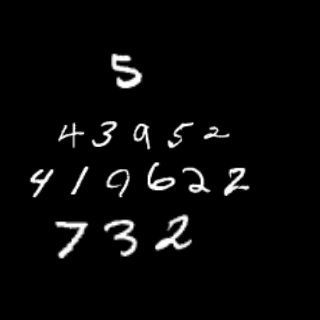 5
43952
419622
732